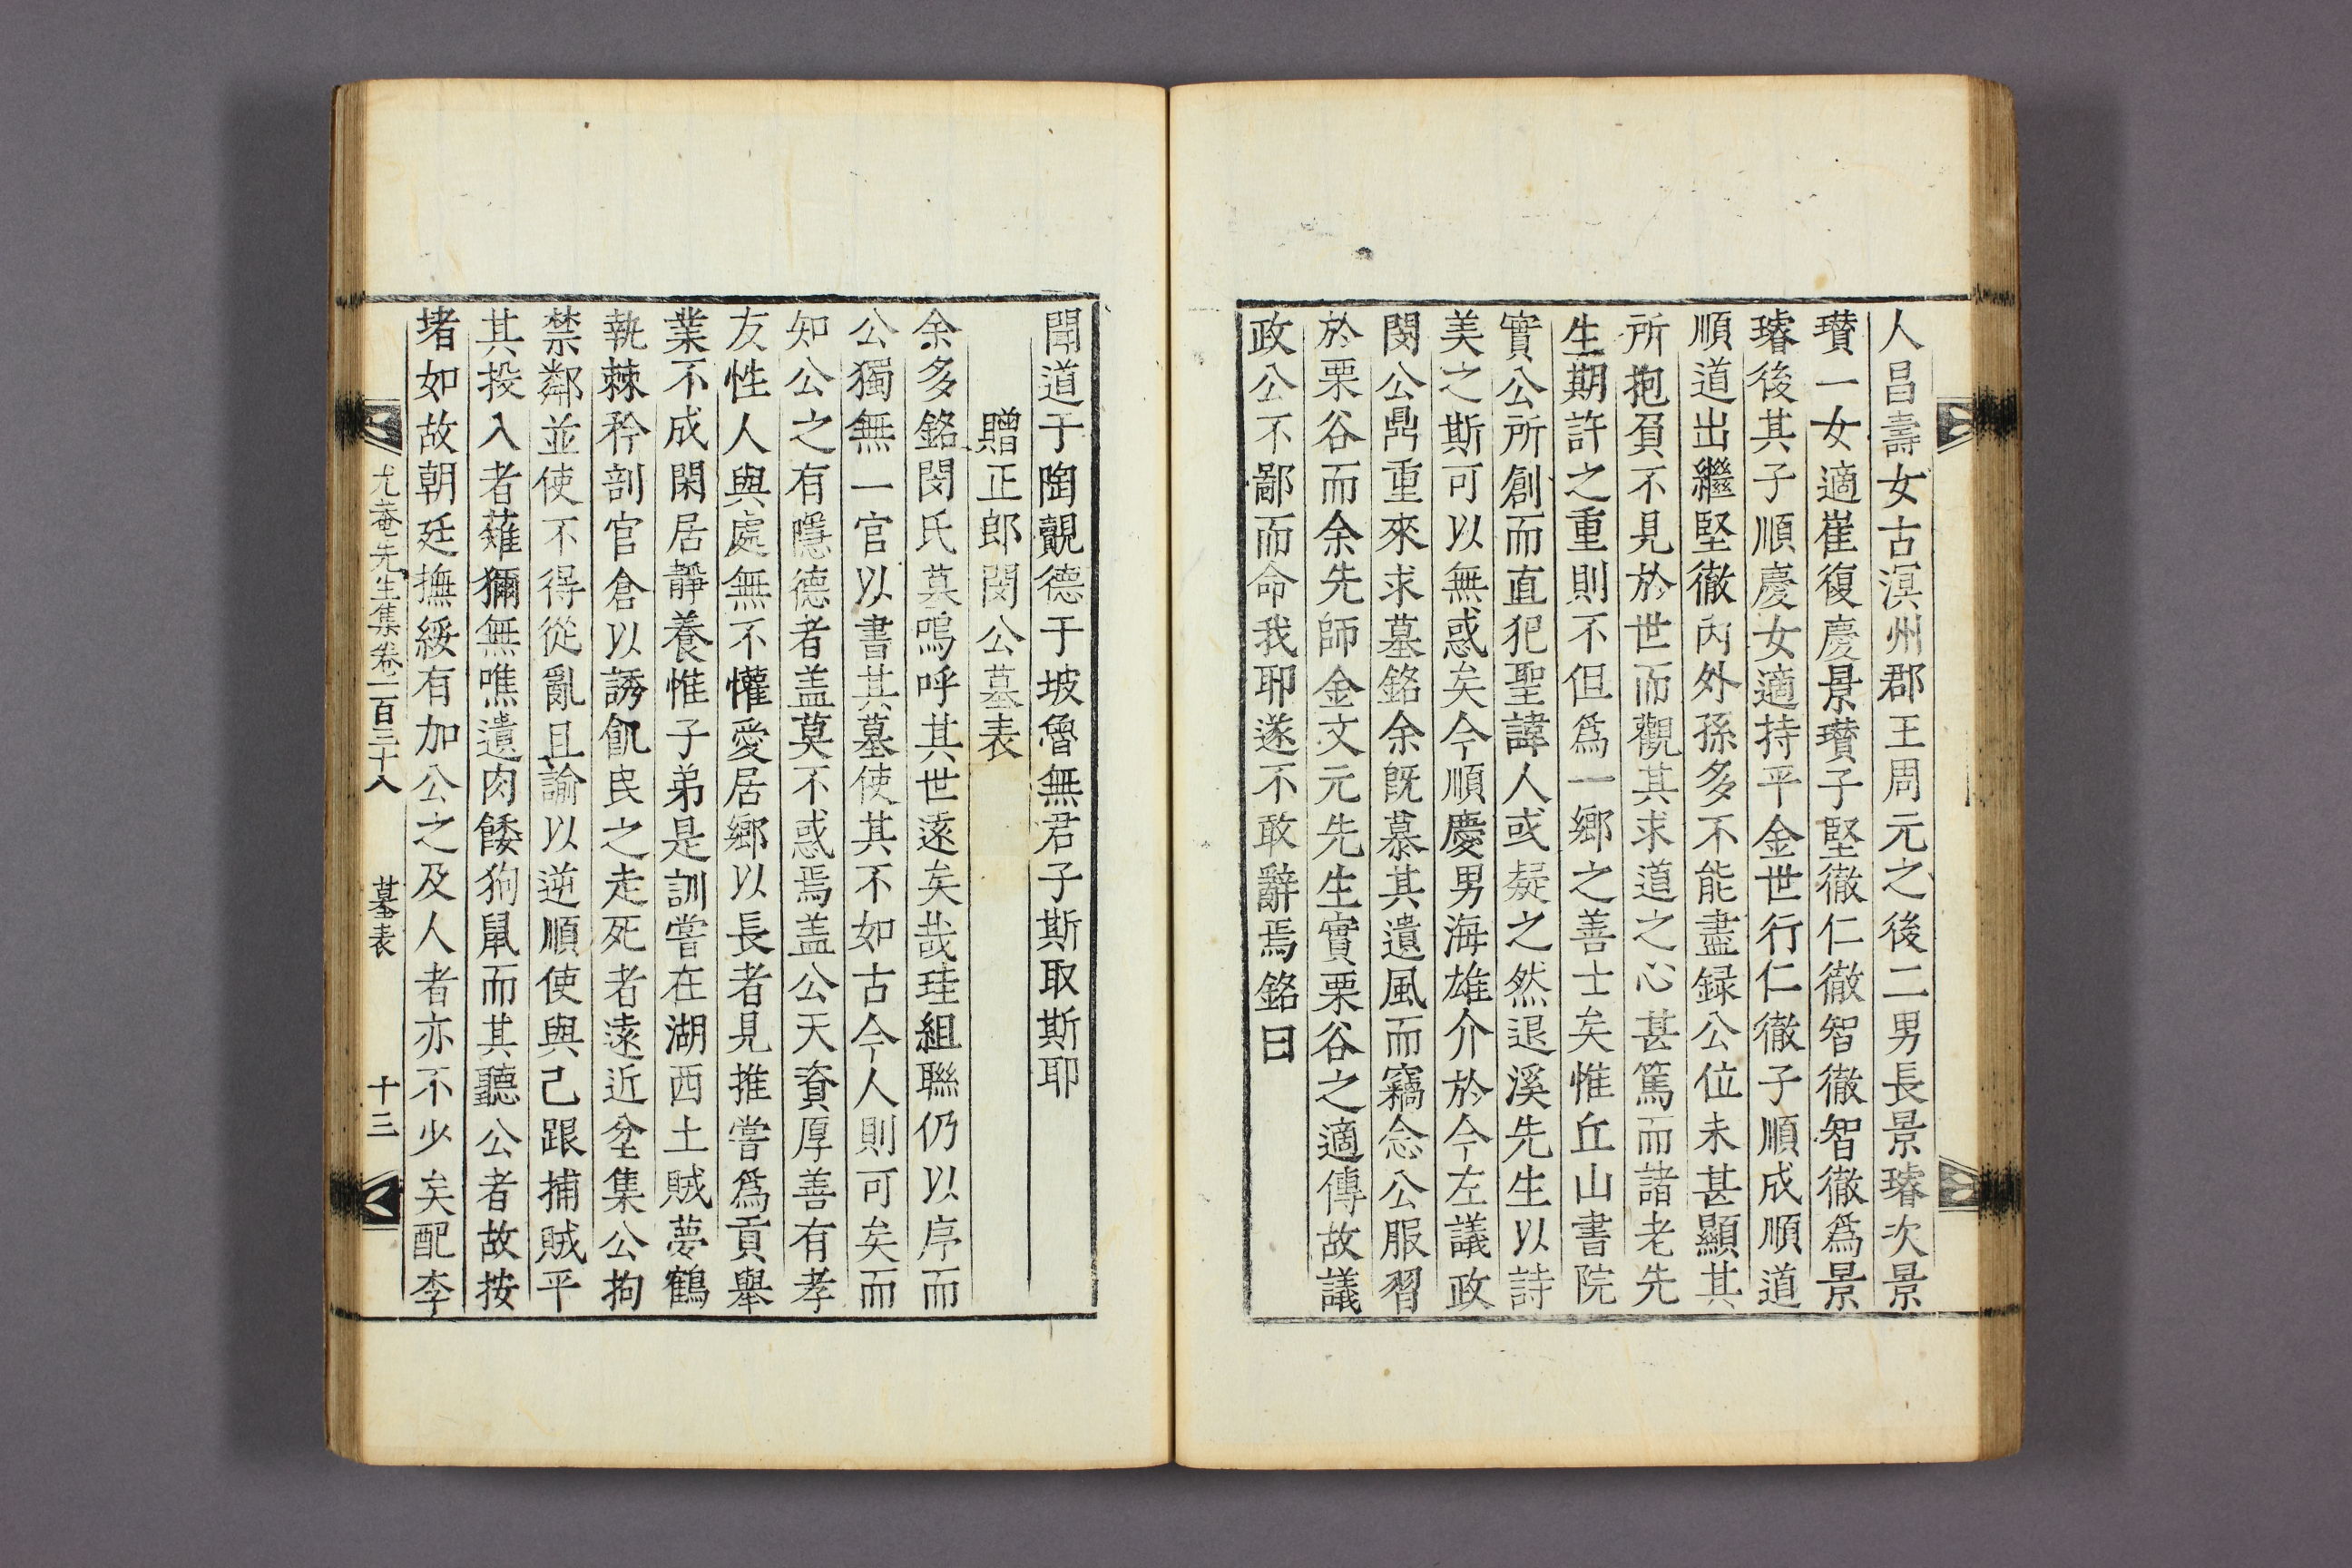 人昌壽女古溟州郡王周元之後二男長景璿次景
瓚一女適崔復慶景瓚子堅徹仁徹智徹智徹爲景
璿後其子順慶女適持平金世行仁徹子順成順道
順道出繼堅徹內外孫多不能盡録公位未甚顯其
所抱負不見於世而觀其求道之心甚篤而諸老先
生期許之重則不但爲一鄕之善士矣惟丘山書院
實公所創而直犯聖諱人或疑之然退溪先生以詩
美之斯可以無惑矣今順慶男海雄介於今左議政
閔公鼎重來求墓銘余旣慕其遺風而竊念公服習
於栗谷而余先師金文元先生實栗谷之適傳故議
政公不鄙而命我耶遂不敢辭焉銘曰
聞道于陶覿德于坡魯無君子斯取斯耶
贈正郎閔公墓表
余多銘閔氏墓嗚呼其世遠矣哉珪組聯仍以序而
公獨無一官以書其墓使其不如古今人則可矣而
知公之有隱德者盖莫不惑焉盖公天資厚善有孝
友性人與處無不懽愛居鄕以長者見推嘗爲貢擧
業不成閑居靜養惟子弟是訓嘗在湖西土賊夢鶴
執棘矜剖官倉以誘飢民之走死者遠近坌集公拘
禁鄰並使不得從亂且諭以逆順使與己跟捕賊平
其投入者薙獮無噍遺肉餧狗鼠而其聽公者故按
堵如故朝廷撫綏有加公之及人者亦不少矣配李
尤菴先生集卷二百三十八 墓表 十三